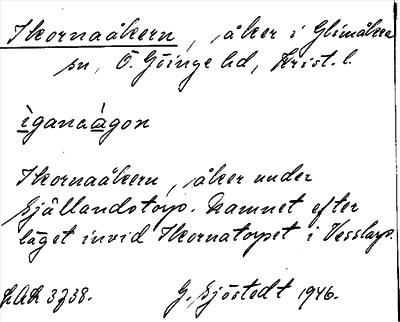 Ikornaåkern, åker i Glimåkra
sn, Ö. Göinge hd, Krist. l.
ìganaàgon
Ikornaåkern, åker under
Själlandstorp. Namnet efter
läget invid Ikornatorpet i Vesslarp.
LAL 3738. G. Sjöstedt 1946.